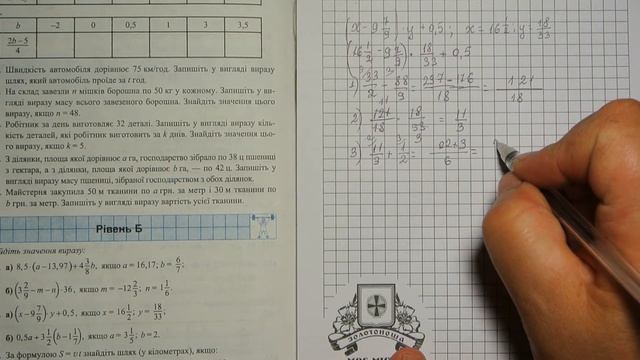 b -2 0 0,5 1 3 3,5
(2b-5)/4
Швидкість автомобіля дорівнює 75 км/год. Запишіть у вигляді виразу
шлях, який автомобіль проїде за t год.
На склад завезли n мішків борошна по 50 кг у кожному. Запишіть у ви-
гляді виразу масу всього завезеного борошна. Знайдіть значення цього
виразу, якщо n = 48.
Робітник за день виготовляє 32 деталі. Запишіть у вигляді виразу кіль-
кість деталей, які робітник виготовить за k днів. Знайдіть значення цьо-
го виразу, якщо k = 5.
З ділянки, площа якої дорівнює a га, господарство зібрало по 38 ц пшениці
з гектара, а з ділянки, площа якої дорівнює b га, — по 42 ц. Запишіть у
вигляді виразу масу пшениці, зібраної господарством з обох ділянок.
Майстерня закупила 50 м тканини по a грн. за метр і 30 м тканини по
b грн. за метр. Запишіть у вигляді виразу вартість усієї тканини.
Рівень Б
йдіть значення виразу:
а) 8,5·(a−13,97)+4 3/8 b, якщо a = 16,17; b = 6/7;
б) (3 2/9 − m − n)·36, якщо m = −12 2/3; n = 1 1/6.
а) (x−9 7/9)·y+0,5, якщо x = 16 1/2; y = 18/33;
б) 0,5a+3 1/2 (b−1 1/7), якщо a = 3 1/5; b = 2.
За формулою S = vt знайдіть шлях (у кілометрах), якщо:
(x − 9 7/9) · y + 0,5; x = 16 1/2; y = 18/33
(16 1/2 − 9 7/9) · 18/33 + 0,5
1) 33/2 − 88/9 = 297−176/18 = 121/18
2) 121/18 · 18/33 = 11/3
3) 11/3 + 1/2 = 22+3/6 =
ЗОЛОТОНОША